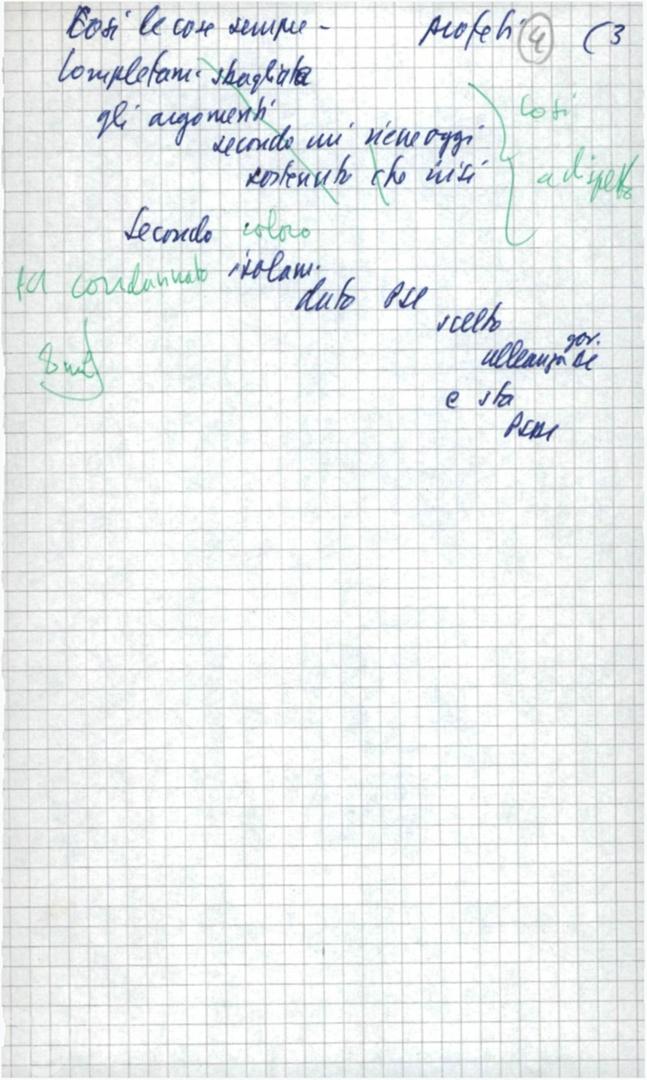 Così le cose sempre - profeti 4 (3
Completam. sbagliata
gli argomenti
secondo cui viene oggi
sostenuto che crisi
così
a dispetto
Secondo coloro
condannato isolam.
dato PSI
scelto
alleanza gov. DC
e sta